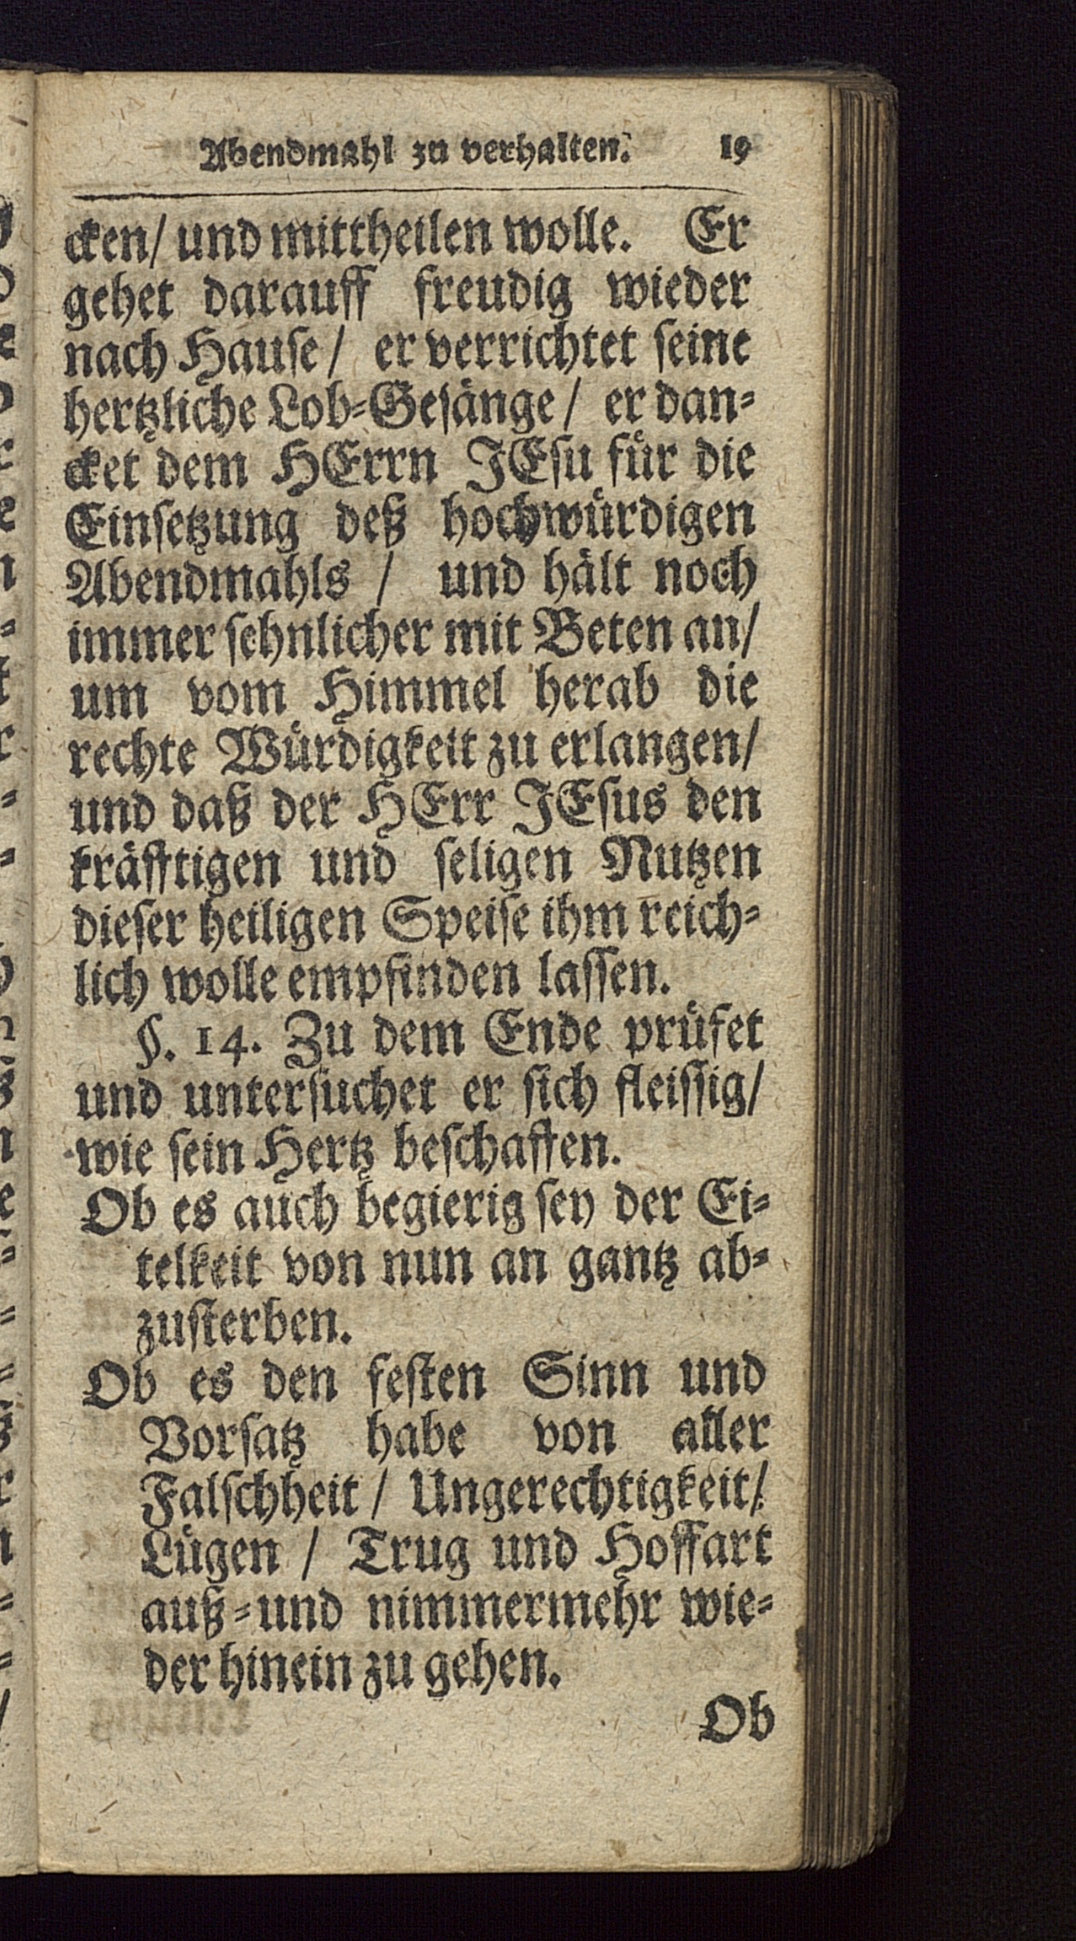 Abendmahl zu verhalten. 19
cken/ und mittheilen wolle. Er
gehet darauff freudig wieder
nach Hause/ er verrichtet seine
hertzliche Lob-Gesänge/ er dan-
cket dem HErrn JEsu für die
Einsetzung deß hochwürdigen
Abendmahls / und hält noch
immer sehnlicher mit Beten an/
um vom Himmel herab die
rechte Würdigkeit zu erlangen/
und daß der HErr JEsus den
kräfftigen und seligen Nutzen
dieser heiligen Speise ihm reich-
lich wolle empfinden lassen.
§. 14. Zu dem Ende prüfet
und untersuchet er sich fleissig/
wie sein Hertz beschaffen.
Ob es auch begierig sey der Ei-
telkeit von nun an gantz ab-
zusterben.
Ob es den festen Sinn und
Vorsatz habe von aller
Falschheit / Ungerechtigkeit/
Lügen / Trug und Hoffart
auß- und nimmermehr wie-
der hinein zu gehen.
Ob